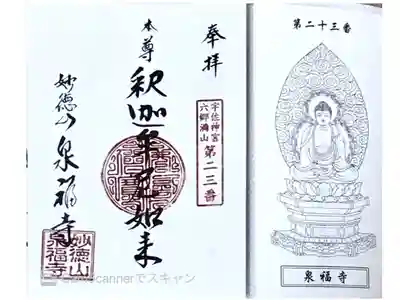 奉拝
宇佐神宮
六郷満山
第二三番
本尊
釈迦牟尼如来
妙徳山泉福寺
妙徳山
泉福寺
CamScannerでスキャン
第二十三番
泉福寺